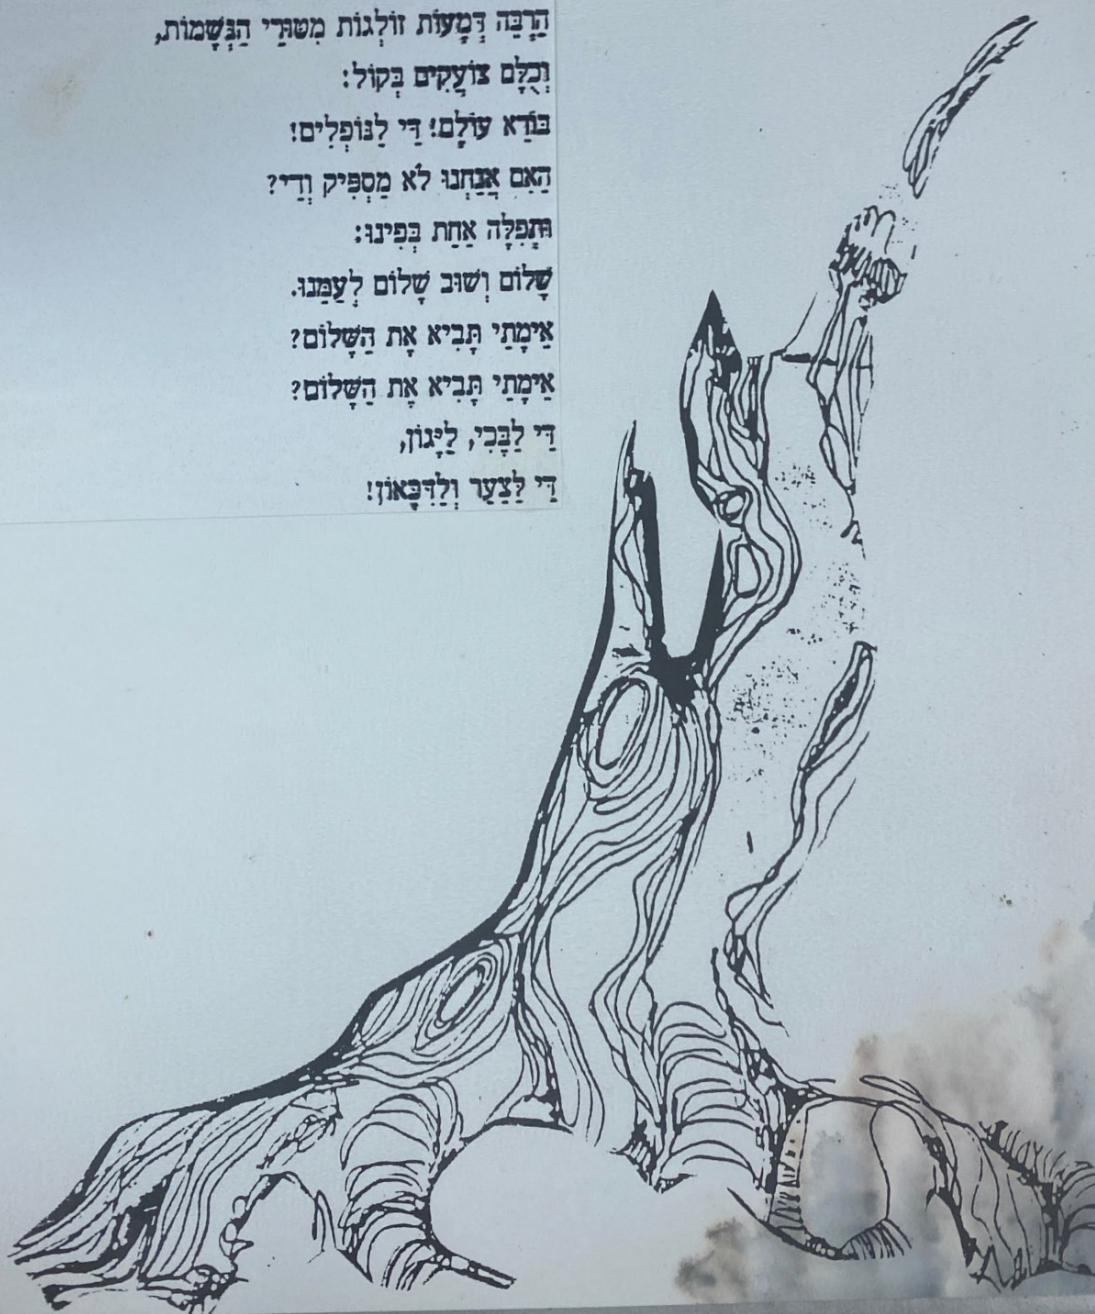 הַרְבֵּה דְּמָעוֹת זוֹלְגוֹת מִטּוּרֵי הַנְּשָׁמוֹת,
וְכֻלָּם צוֹעֲקִים בְּקוֹל:
בּוֹרֵא עוֹלָם! דַּי לַנּוֹפְלִים!
הַאִם אֲנַחְנוּ לֹא מַסְפִּיק וְדַי?
וּתְפִלָּה אַחַת בְּפִינוּ:
שָׁלוֹם וְשׁוּב שָׁלוֹם לְעַמֵּנוּ.
אֵימָתַי תָּבִיא אֶת הַשָּׁלוֹם?
אֵימָתַי תָּבִיא אֶת הַשָּׁלוֹם?
דַּי לַבֶּכִי, לַיָּגוֹן,
דַּי לַצַּעַר וְלַדִּכָּאוֹן!